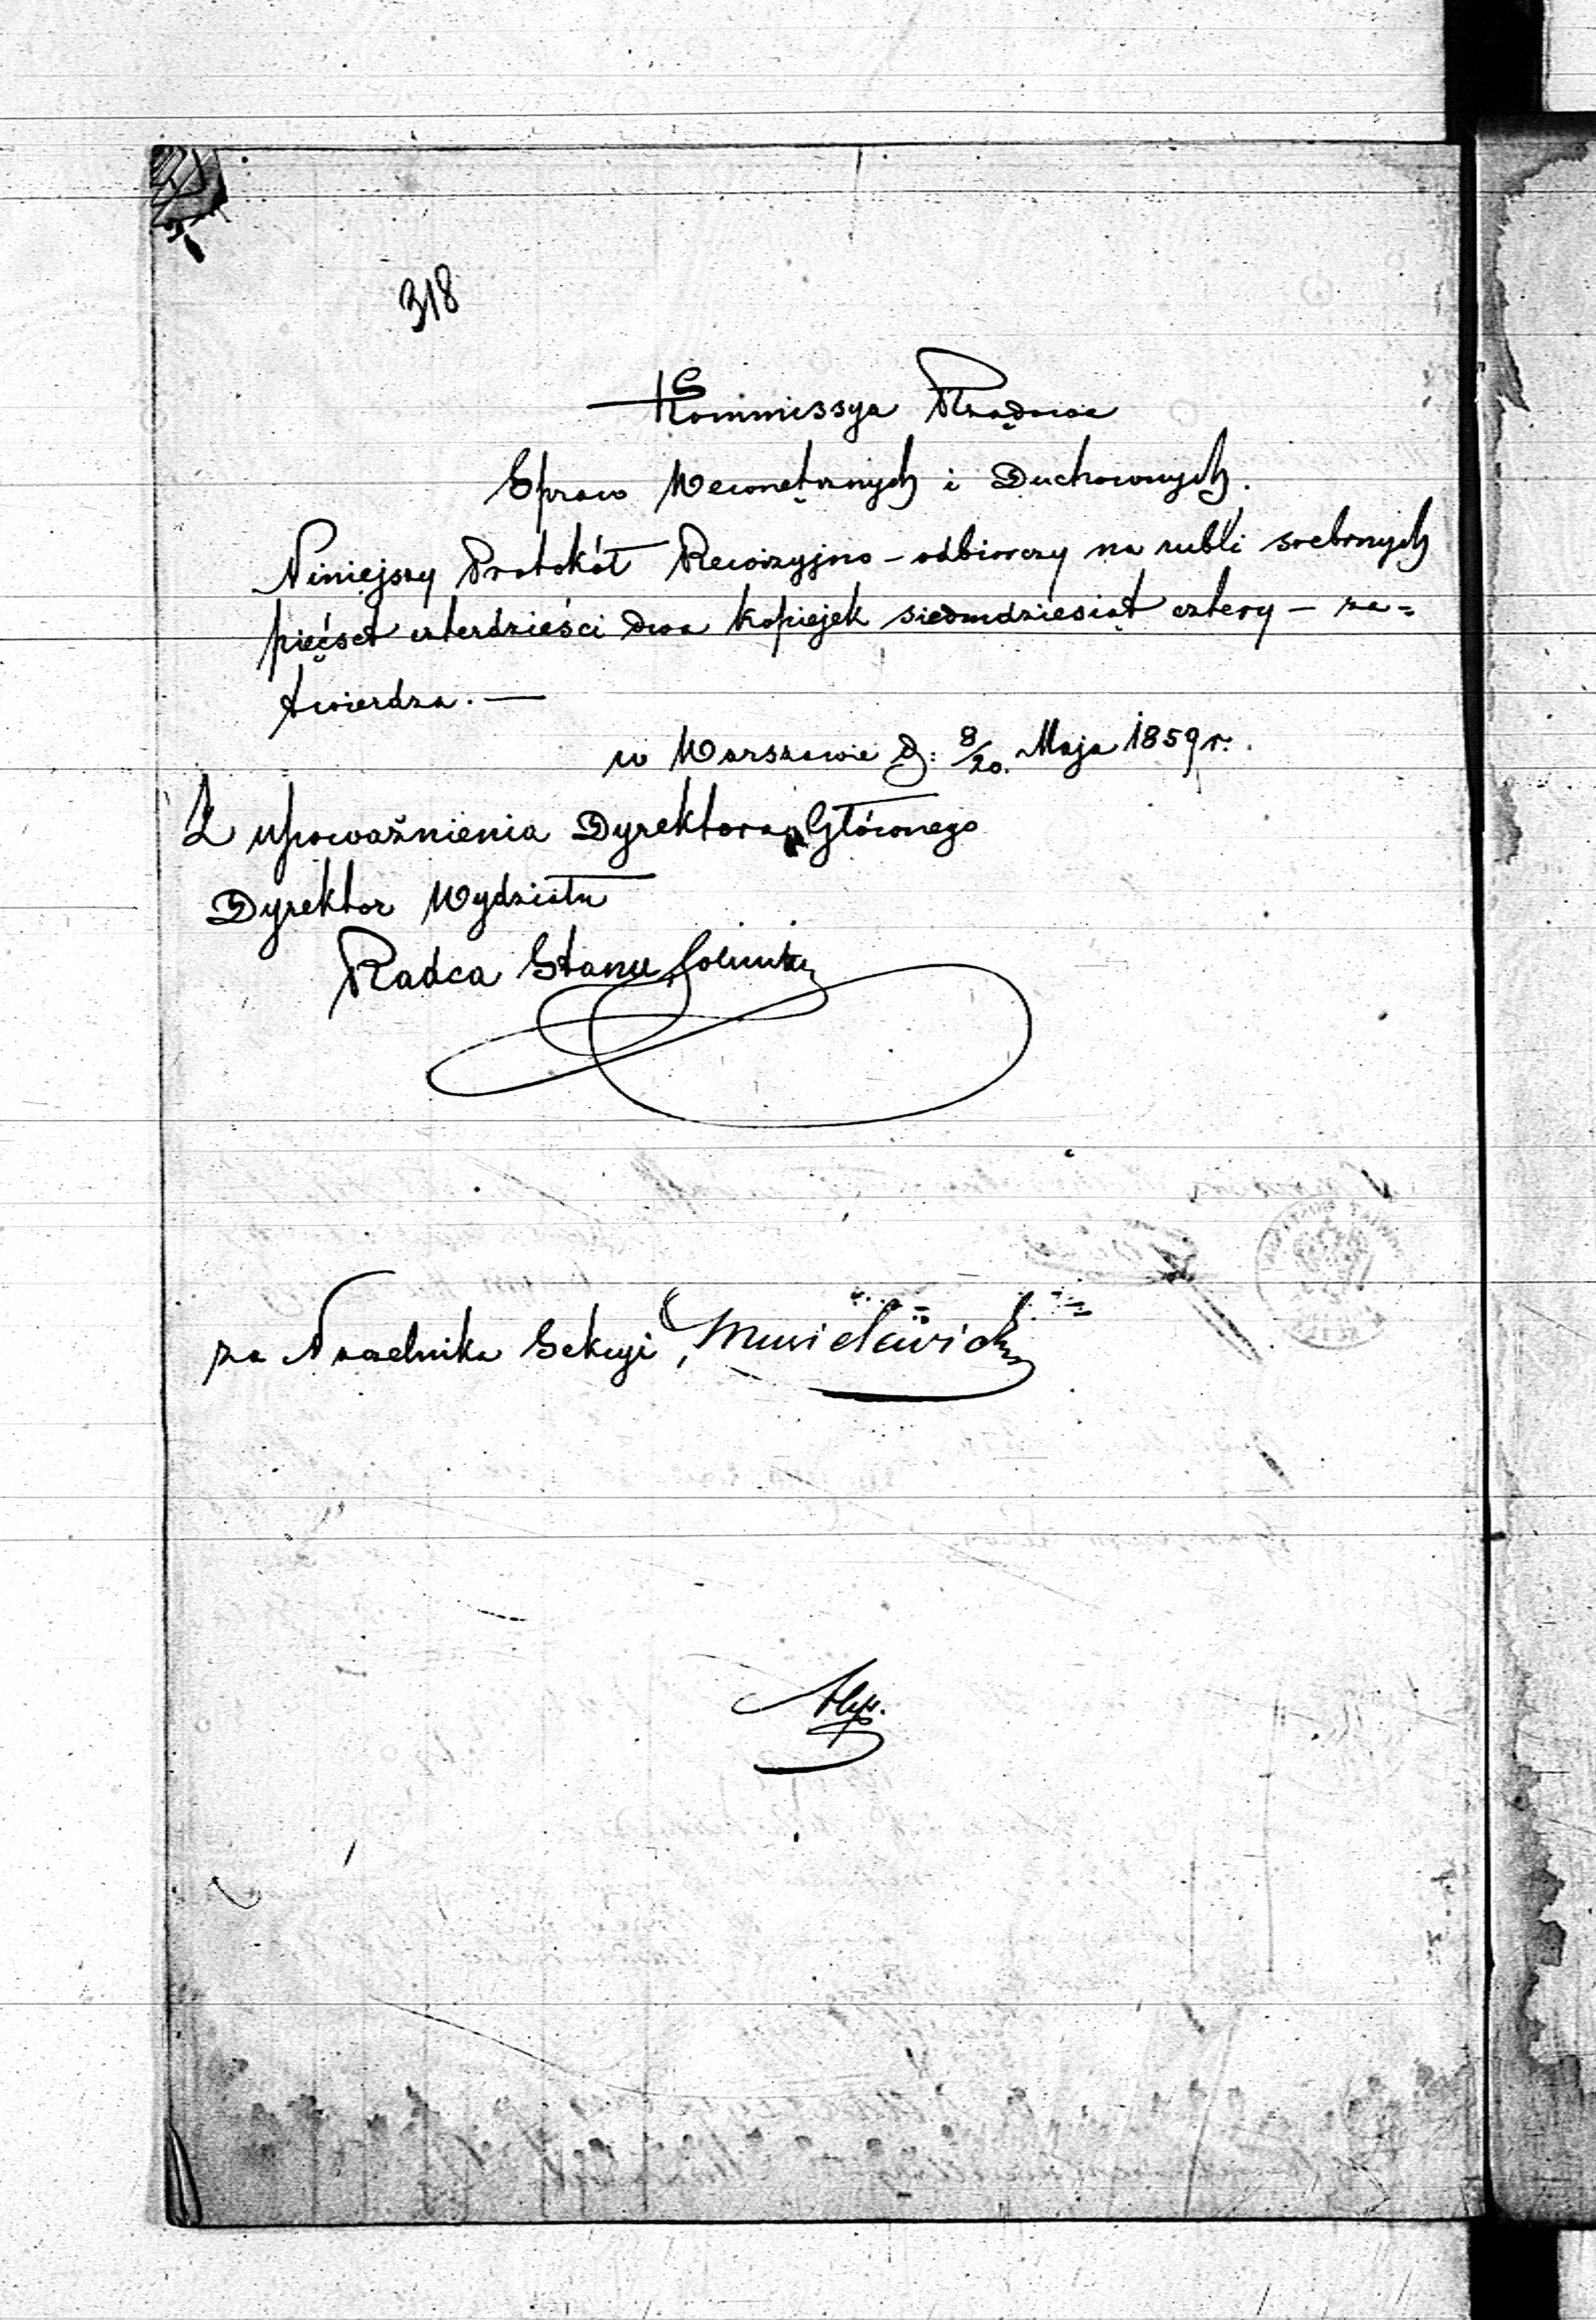 318
Kommissya Rządowa
Spraw Wewnętrznych i Duchownych.
Niniejszy Protokół Rewizyjno - odbiorczy na rubli srebrnych
pięćset czterdzieści dwa kopiejek siedmdziesiąt cztery - za=
twierdza. —
w Warszawie d: 8/20. Maja 1859 r.
Z upoważnienia Dyrektora Głównego
Dyrektor Wydziału
Radca Stanu
za Naczelnika Sekcyi,